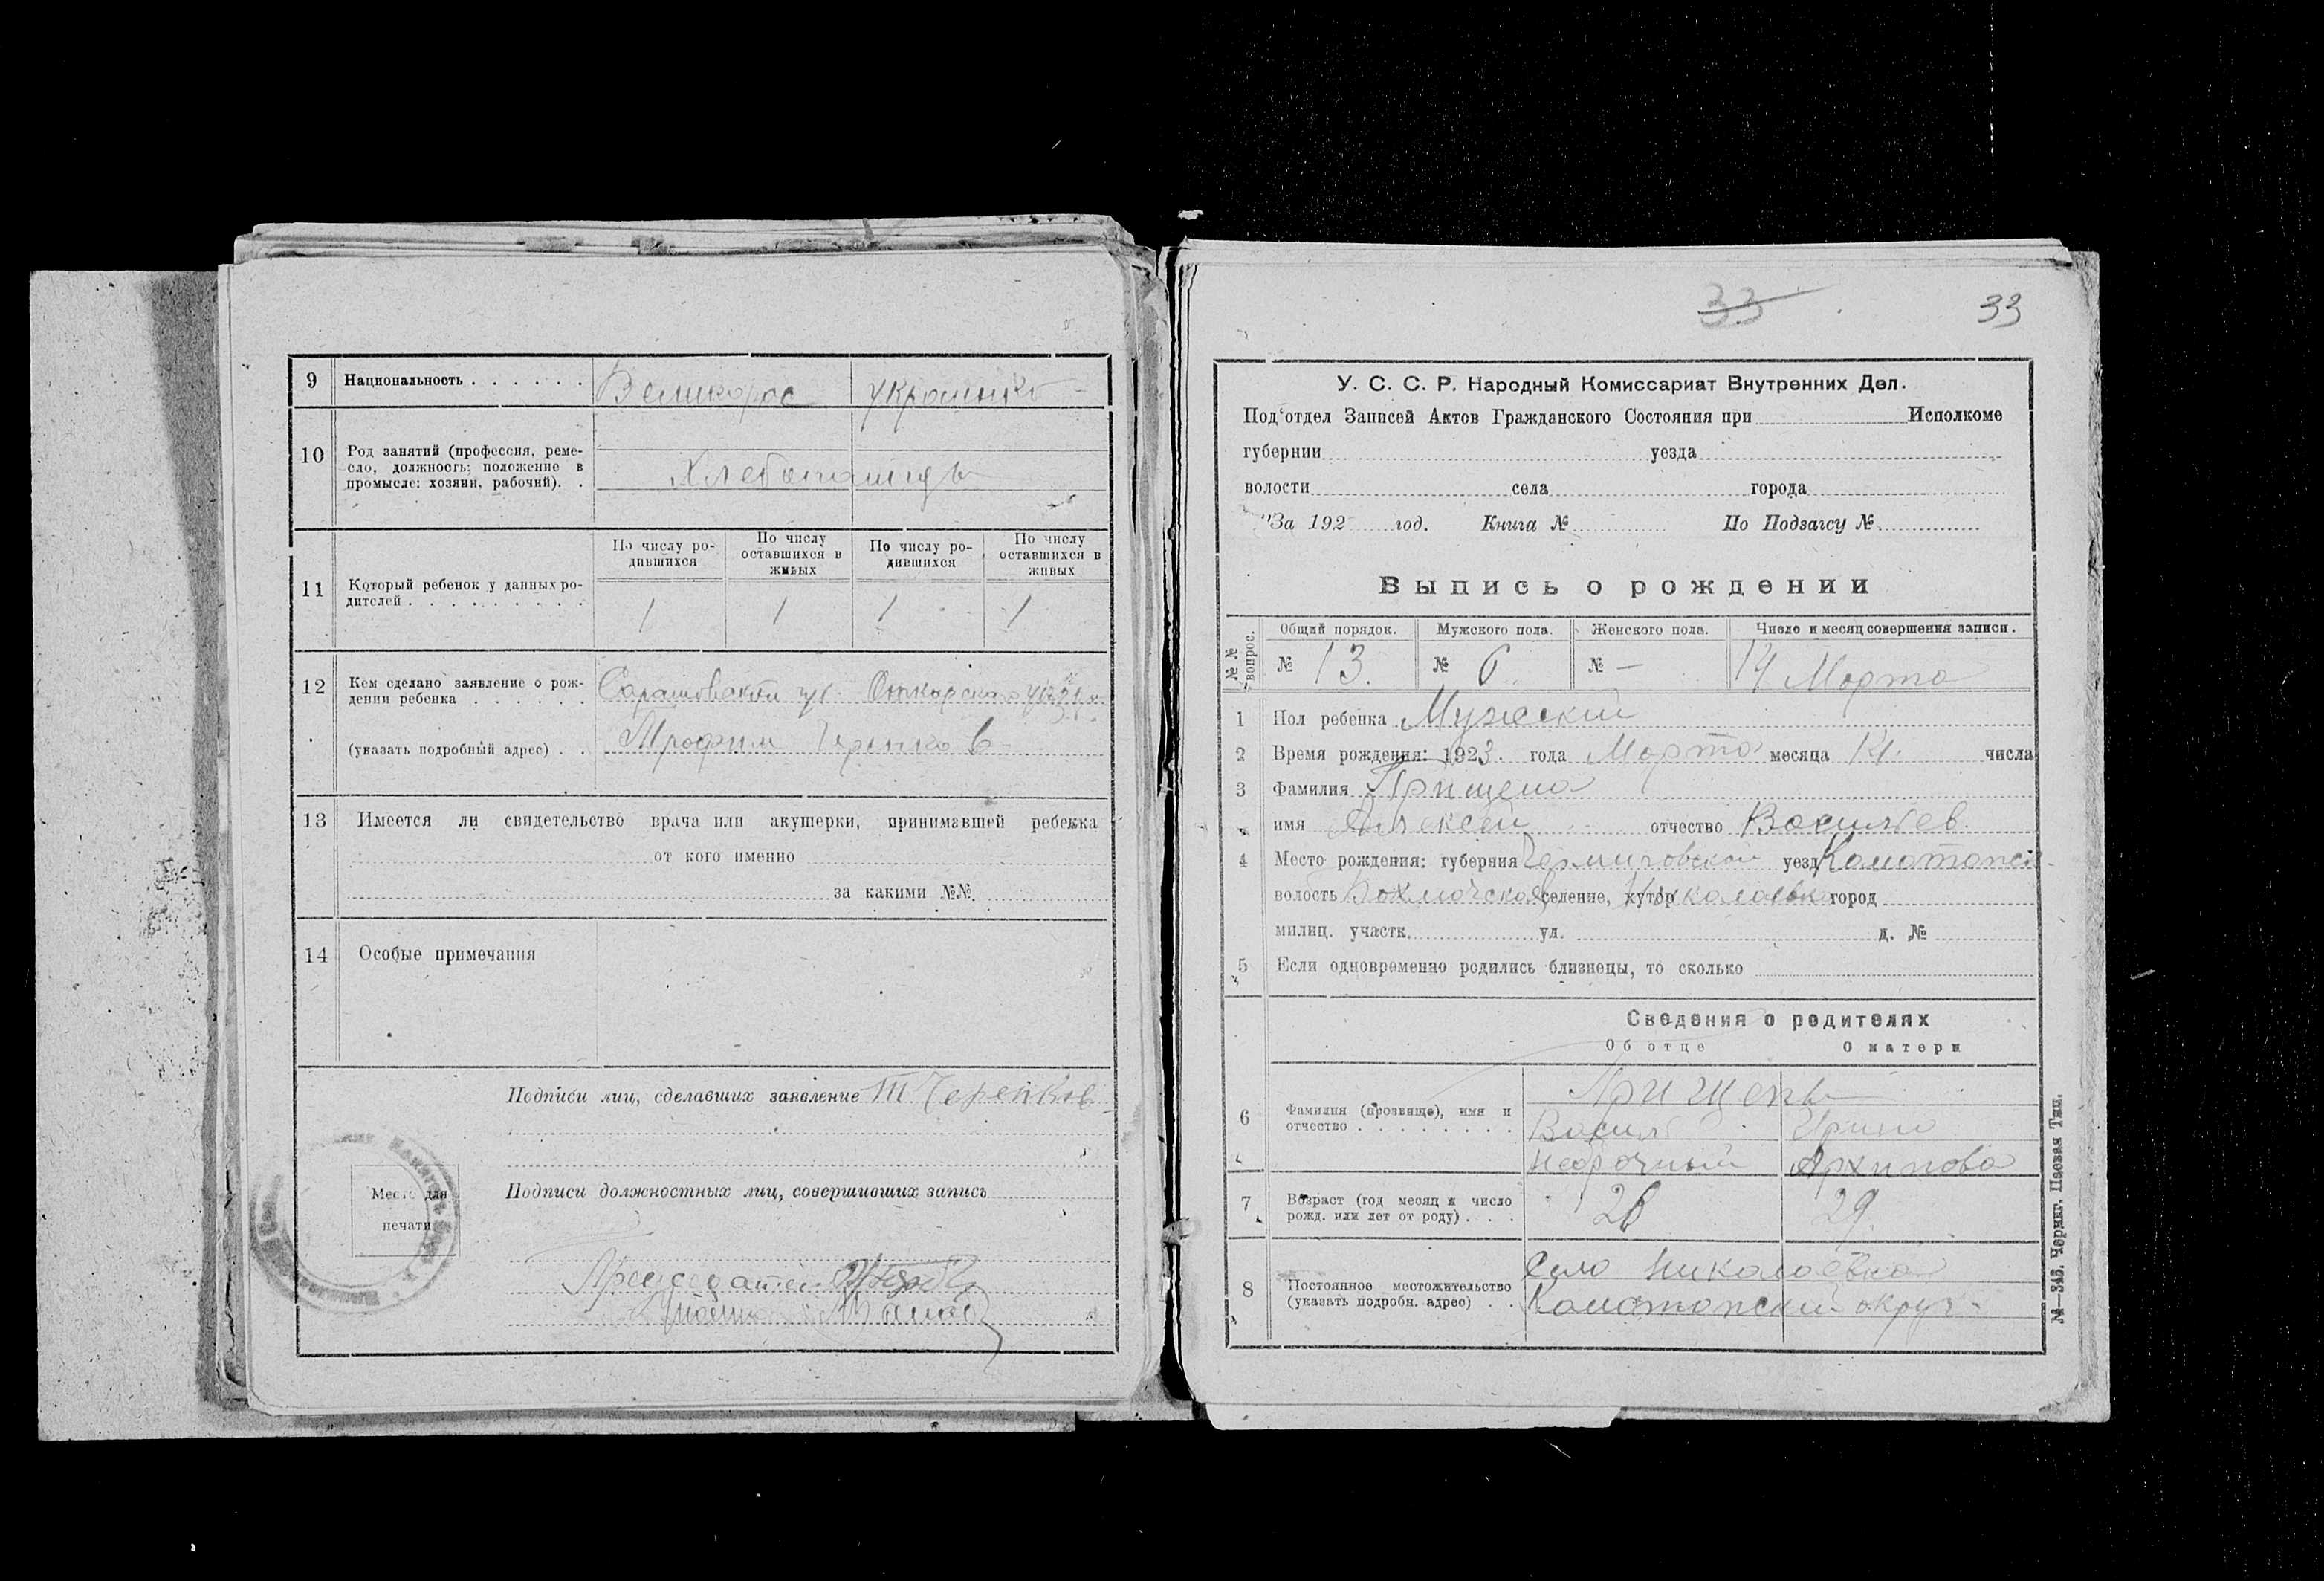 9 Национальность . . . . . . Великорос украинка
10 Род занятий (профессия, реме-
сло, должность; положение в
промысле: хозяин, рабочий). .
Хлебопашцы
11 Который ребенок у данных ро-
дителей . . . . . . . . . .
По числу ро-
дившихся
По числу
оставшихся в
живых
По числу ро-
дившихся
По числу
оставшихся в
живых
1 1 1 1
12 Кем сделано заявление о рож-
дении ребенка . . . . . .
(указать подробный адрес) . .
Саратовской губ. Аткарского
Трофим Черенков
13 Имеется ли свидетельство врача или акушерки, принимавшей ребенка
от кого именно
за какими №№
14 Особые примечания
Подписи лиц, сделавших заявление Т Черенков
Место для
печати
Подписи должностных лиц, совершивших запись
Председатель
33 33
У. С. С. Р. Народный Комиссариат Внутренних Дел.
Под'отдел Записей Актов Гражданского Состояния при Исполкоме
губернии уезда
волости села города
За 192 год. Книга № По Подзагсу №
Выпись о рождении
№ № вопрос.
Общий порядок. Мужского пола. Женского пола. Число и месяц совершения записи.
№ 13. № 6. № — 14 Марта
1 Пол ребенка Мужеский
2 Время рождения: 1923. года Марта месяца 14. числа
3 Фамилия Прищепа
имя Алексей отчество Васильев
4 Место рождения: губерния Черниговской уезд Канатопск
волость Бахмачская селение, хутор Николаевка город
милиц. участк. ул. д. №
5 Если одновременно родились близнецы, то сколько
Сведения о родителях
Об отце О матери
6 Фамилия (прозвище), имя и
отчество . . . . . . . .
Прищепы
Василь Ирина
Архипова
7 Возраст (год месяц и число
рожд. или лет от роду) . . .
26 29
8 Постоянное местожительство
(указать подробн. адрес) . .
Село Николаевка
Канатопский округ.
№—343. Черниг. Паевая Тип.